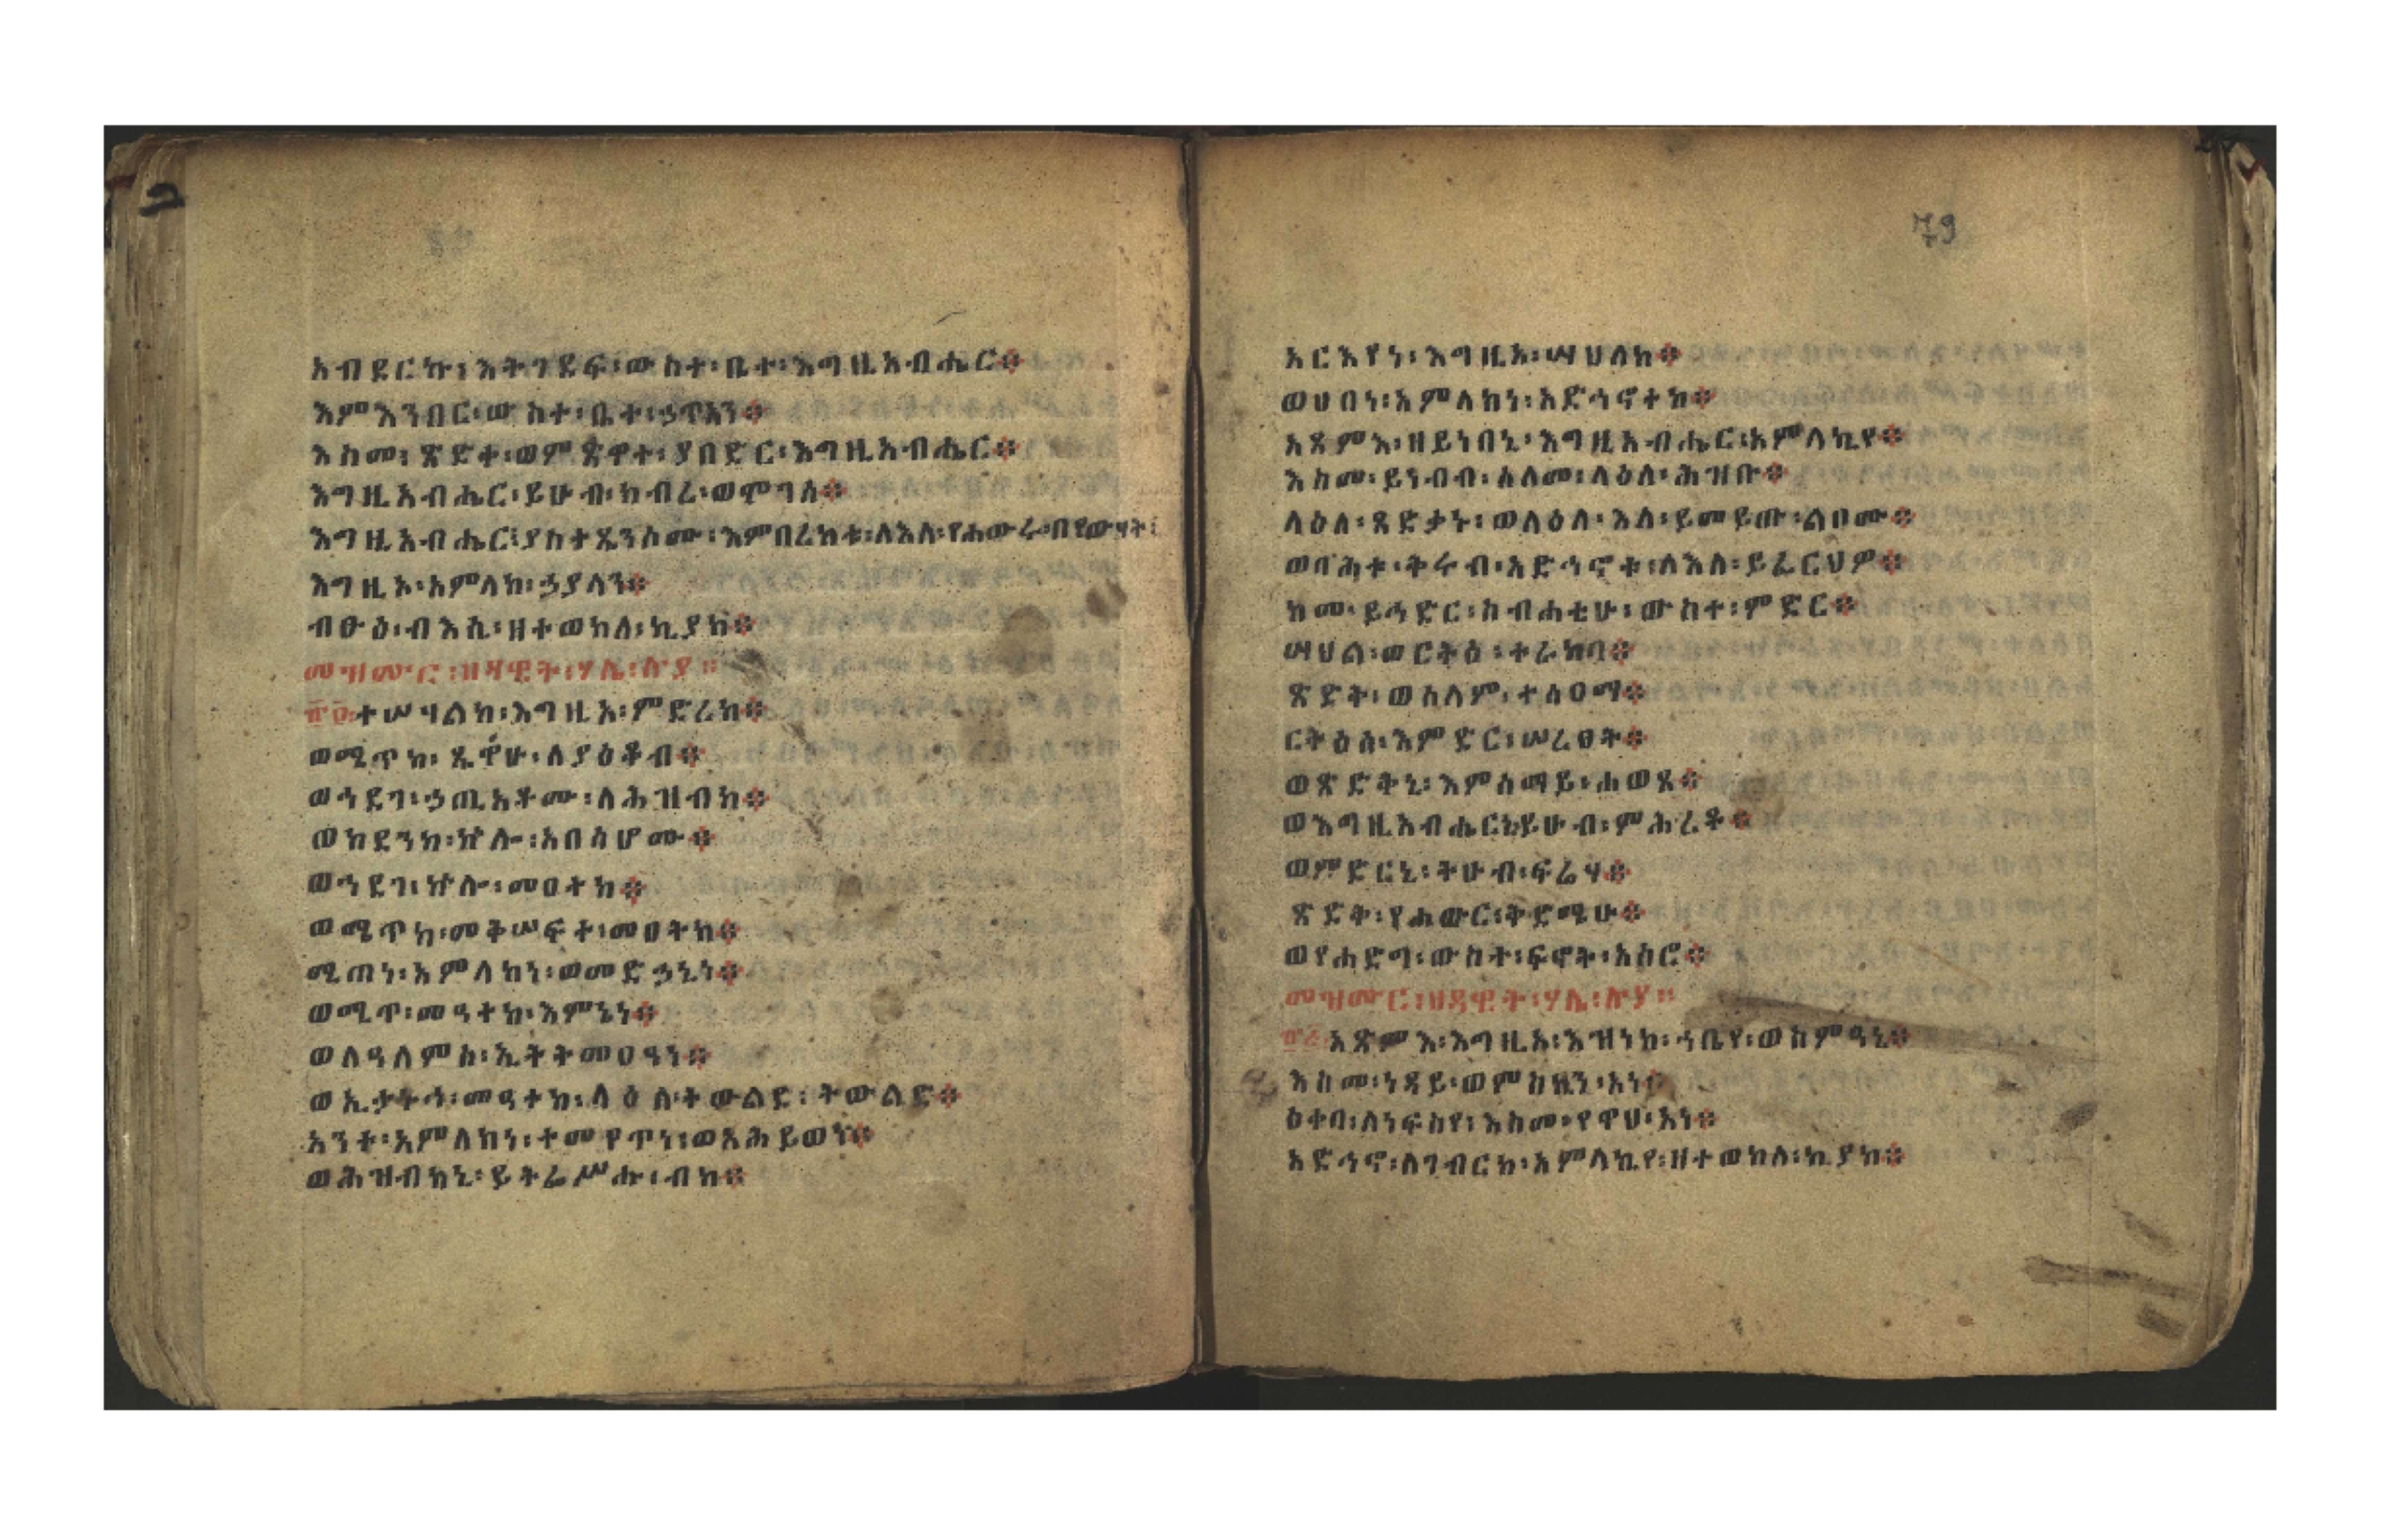 አብደርኩ፡እትገደፍ፡ውስተ፡ቤተ፡እግዚአብሔር።
እምእንበር፡ውስተ፡ቤተ፡ኃጥአን።
እስመ፡ጽድቀ፡ወምጽዋተ፡ያበድር፡እግዚአብሔር።
እግዚአብሔር፡ይሁብ፡ክብረ፡ወሞገሰ።
እግዚአብሔር፡ያስተጼንሶሙ፡እምበረከቱ፡ለእለ፡የሐውሩ፡በየውሃት፡
እግዚኦ፡አምላከ፡ኃያላን።
ብፁዕ፡ብእሲ፡ዘተወከለ፡ኪያከ።
መዝሙር፡ዘዳዊት፡ሃሌ፡ሉያ።
፹፬ተሠሃልከ፡እግዚኦ፡ምድረከ።
ወሜጥከ፡ጼዋሁ፡ለያዕቆብ።
ወኅደገ፡ኃጢአቶሙ፡ለሕዝብከ።
ወከደንከ፡ኵሎ፡አበሳሆሙ።
ወኅደገ፡ኵሎ፡መዐተከ።
ወሜጥከ፡መቅሠፍተ፡መዐትከ።
ሚጠነ፡አምላክነ፡ወመድኃኒነ።
ወሚጥ፡መዓተከ፡እምኔነ።
ወለዓለምሰ፡ኢትትመዐዓነ።
ወኢታትኅ፡መዓተከ፡ላዕለ፡ትውልድ፡ትውልድ።
አንተ፡አምላክነ፡ተመየጥነ፡ወአሕይወነ።
ወሕዝብከኒ፡ይትፌሥሑ፡ብከ።
79
አርእየነ፡እግዚኦ፡ሣህለከ።
ወሀበነ፡አምላክነ፡አድኅኖተከ።
አጽምእ፡ዘይነበኒ፡እግዚአብሔር፡አምላኪየ።
እስመ፡ይነብብ፡ሰላመ፡ላዕለ፡ሕዝቡ።
ላዕለ፡ጻድቃኑ፡ወላዕለ፡እለ፡ይመይጡ፡ልቦሙ።
ወባሕቱ፡ቅሩብ፡አድኅኖቱ፡ለእለ፡ይፈርህዎ።
ከመ፡ይኅድር፡ስብሐቲሁ፡ውስተ፡ምድር።
ሣህል፡ወርትዕ፡ተራከባ።
ጽድቅ፡ወሰላም፡ተሰዐማ።
ርትዕሰ፡እምድር፡ሠረፀት።
ወጽድቅኒ፡እምሰማይ፡ሐወጸ።
ወእግዚአብሔርኒ፡ይሁብ፡ምሕረቶ።
ወምድርኒ፡ትሁብ፡ፍሬሃ።
ጽድቅ፡የሐውር፡ቅድሜሁ።
ወየሐድግ፡ውስተ፡ፍኖት፡አሰሮ።
መዝሙር፡ዘዳዊት፡ሃሌ፡ሉያ።
አጽምእ፡እግዚኦ፡እዝነከ፡ኀቤየ፡ወስምዓኒ።
እስመ፡ነዳይ፡ወምስኪን፡አነ።
ዕቀባ፡ለነፍስየ፡እስመ፡የዋህ፡አነ።
አድኅኖ፡ለገብርከ፡አምላኪየ፡ዘተወከለ፡ኪያከ።